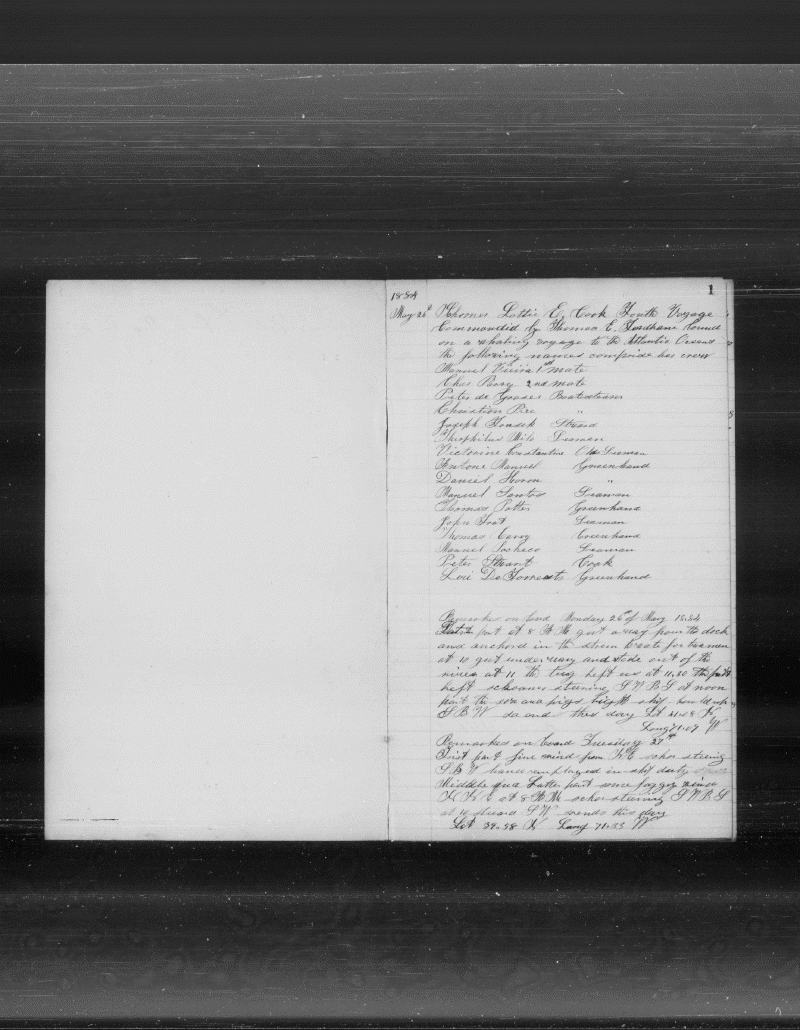 1884
1
May 26th Schooner Lottie E. Cook Fouth Voyage
Commandid by Thomas E. Fordham bound
on a whaling voyage to the Atlantic Oceans
the following names compride her crew
Manuel Vieira 1st mate
Chas Perry 2nd mate
Peter de Boatsteerer
Christian "
Joseph Steard
Theophilus Seaman
Victorine Constantine Seaman
Antone Manuel Greenhand
Daniel "
Manuel Santos Seaman
Thomas Potter Greenhand
John Seaman
Thomas Greenhand
Manuel Pacheco Seaman
Peter Cook
Loui Greenhand
Remarks on bord Monday 26th of May 1884
First part at 8 A M got away from the dock
and anchord in the streem to wate for two men
at 10 got under way and stode out of the
river at 11 the tug left us at 11.30 the
left schooner steering S W B S at noon
part the ship
S B W so ends this day Lat 41.08 N
Long 71.07 W
Remarks on board Tuesday 27th
First part fine wind from N E schor steering
S B W hands employed in ship duty
Middle and Latter part some foggy wind
N N E at 8 A M schor steering S W B S
at 10 steard S W so ends this day
Lat 39.38 N Long 71.53 W